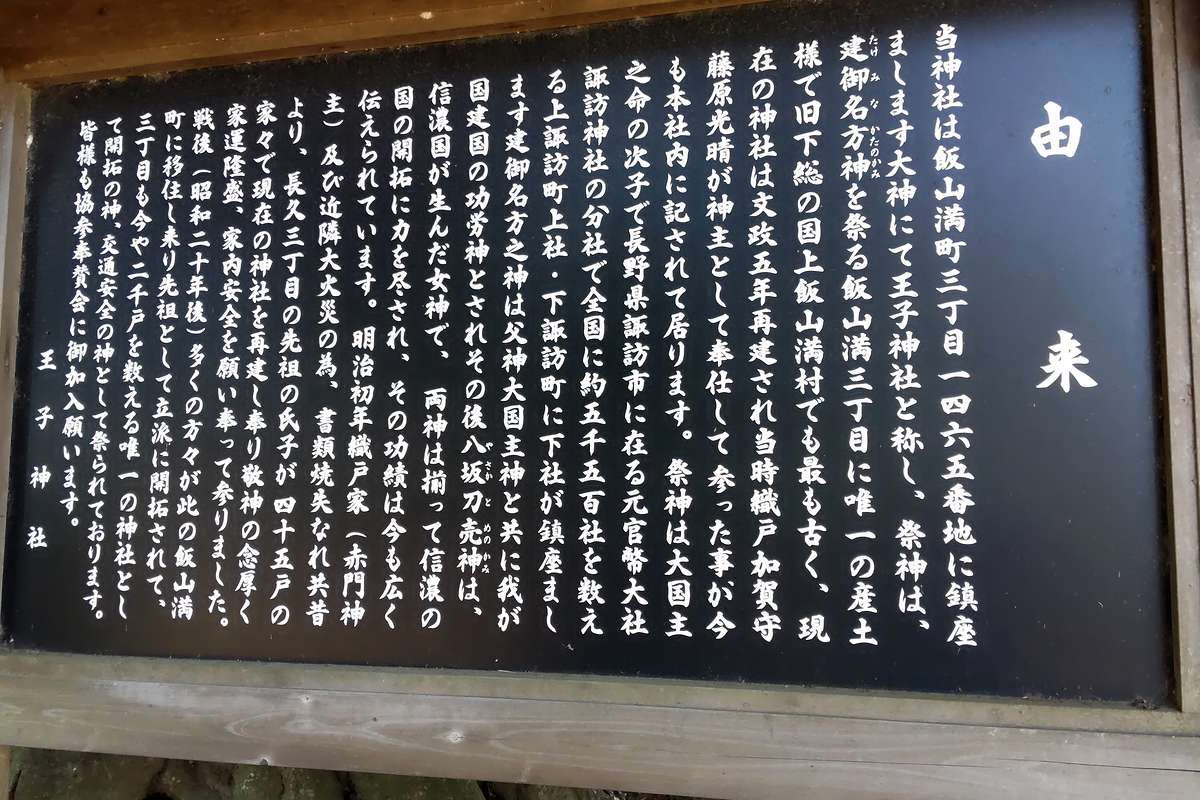 由来
当神社は飯山満町三丁目一四六五番地に鎮座
まします大神にて王子神社と称し、祭神は、
建御名方神を祭る飯山満三丁目に唯一の産土
たけみなかたのかみ
様で旧下総の国上飯山満村でも最も古く、現
在の神社は文政五年再建され当時織戸加賀守
藤原光晴が神主として奉仕して参った事が今
も本社内に記されて居ります。祭神は大国主
之命の次子で長野県諏訪市に在る元官幣大社
諏訪神社の分社で全国に約五千五百社を数え
る上諏訪町上社・下諏訪町に下社が鎮座まし
ます建御名方之神は父神大国主神と共に我が
国建国の功労神とされその後八坂刀売神は、
ざかとめのかみ
信濃国が生んだ女神で、両神は揃って信濃の
国の開拓に力を尽され、その功績は今も広く
伝えられています。明治初年織戸家（赤門神
主）及び近隣大火災の為、書類焼失なれ共昔
より、長久三丁目の先祖の氏子が四十五戸の
家々で現在の神社を再建し奉り敬神の念厚く
家運隆盛、家内安全を願い奉って参りました。
戦後（昭和二十年後）多くの方々が此の飯山満
町に移住し来り先祖として立派に開拓されて、
三丁目も今や二千戸を数える唯一の神社とし
て開拓の神、交通安全の神として祭られております。
皆様も協参奉賛会に御加入願います。
王子神社